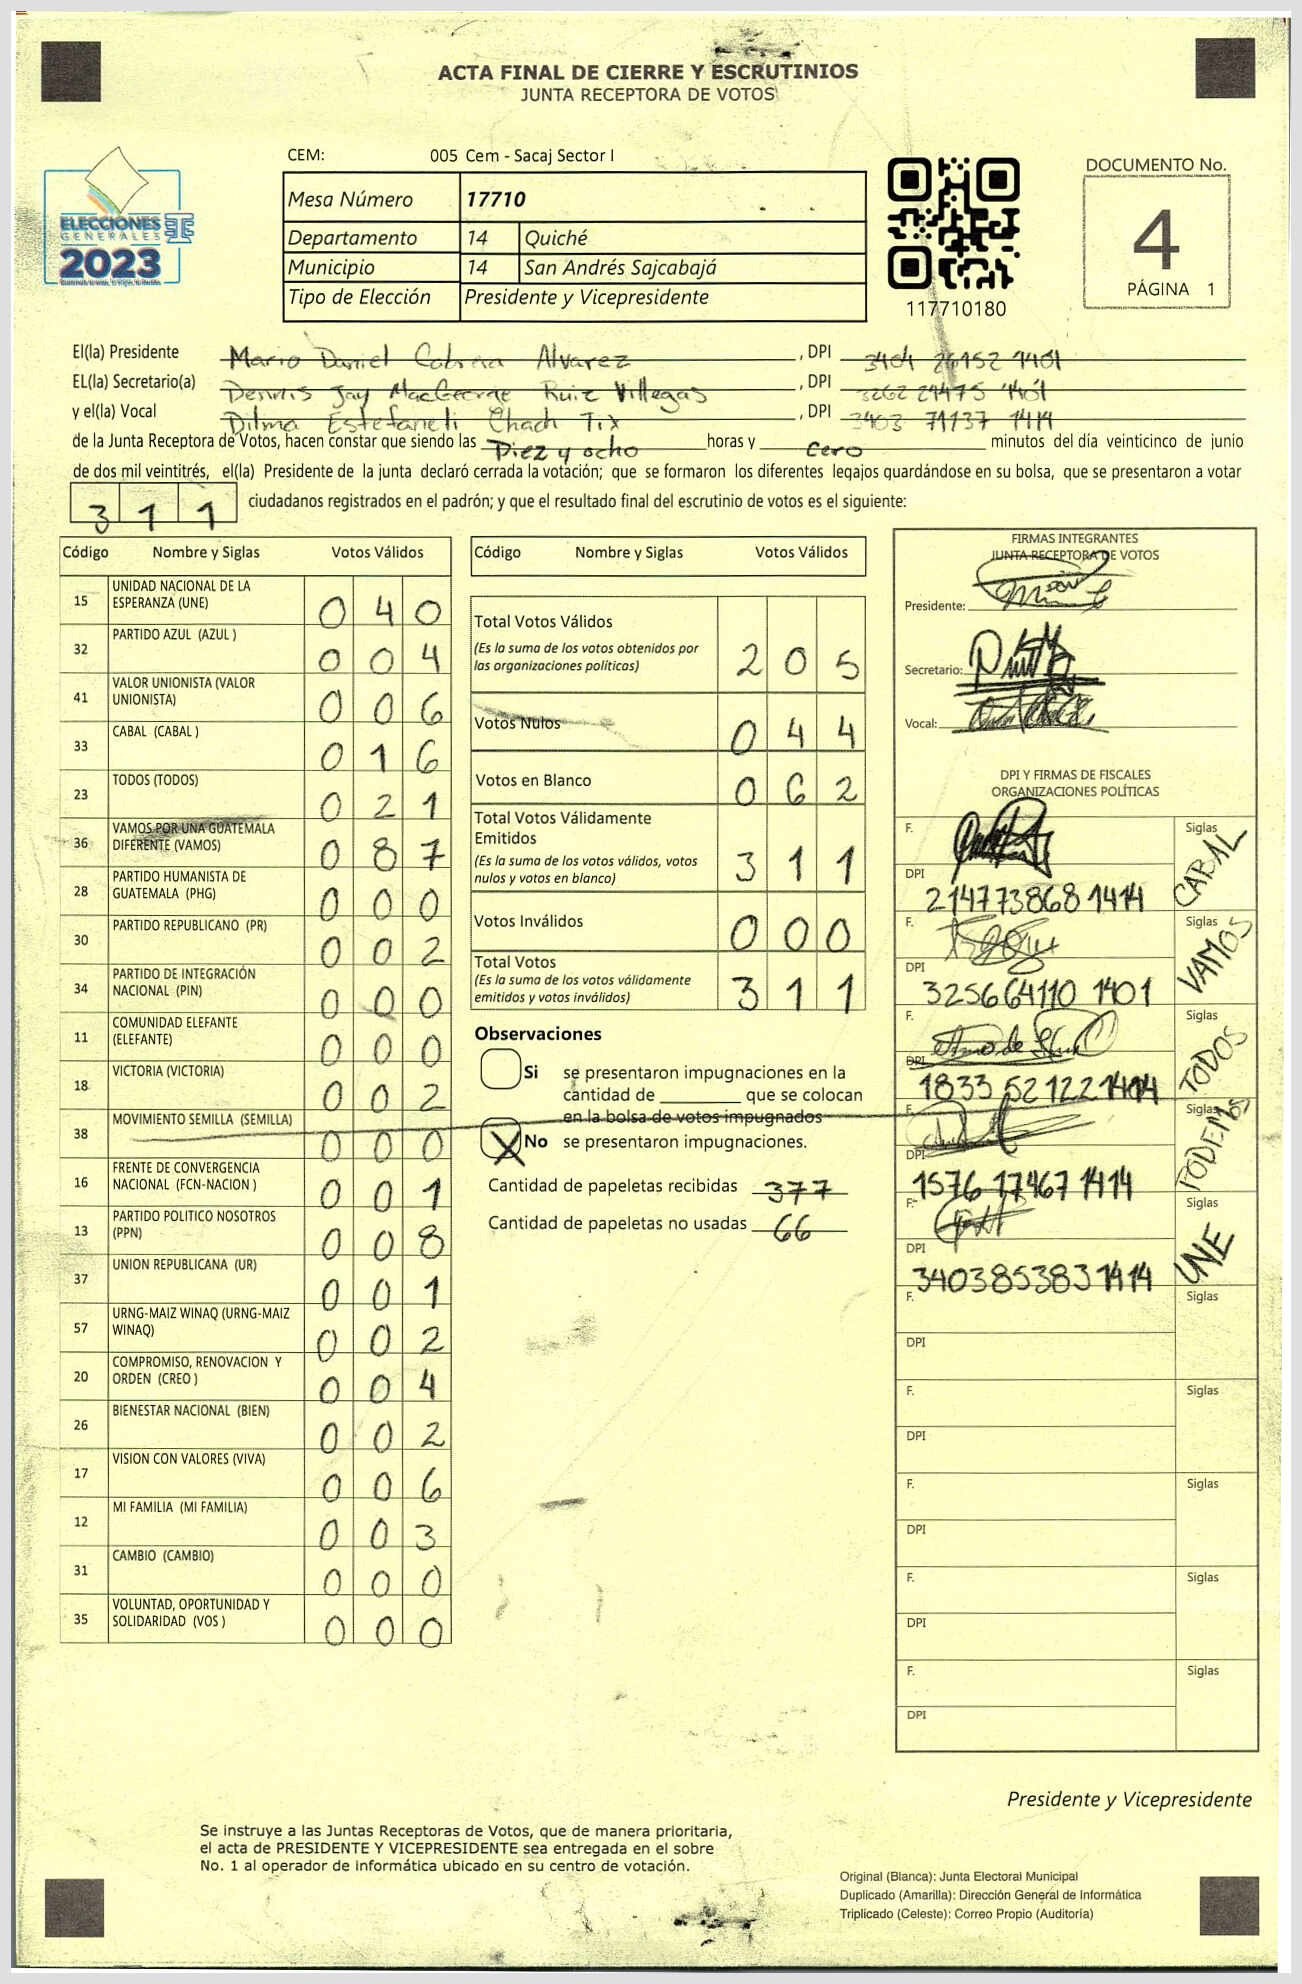 ACTA FINAL DE CIERRE Y ESCRUTINIOS
JUNTA RECEPTORA DE VOTOS
ELECCIONES
GENERALES
2023
CEM: 005 Cem - Sacaj Sector I
Mesa Número 17710
Departamento 14 Quiché
Municipio 14 San Andrés Sajcabajá
Tipo de Elección Presidente y Vicepresidente
117710180
DOCUMENTO No.
4
PÁGINA 1
El(la) Presidente Mario Daniel Cabrera Alvarez , DPI 3404 26152 1401
EL(la) Secretario(a) Dennis Jay MacGeorge Ruiz Villegas , DPI 3262 21475 1401
y el(la) Vocal Dilma Estefaneli Chach Tix , DPI 3403 71137 1414
de la Junta Receptora de Votos, hacen constar que siendo las Diez y ocho horas y cero minutos del día veinticinco de junio
de dos mil veintitrés, el(la) Presidente de la junta declaró cerrada la votación; que se formaron los diferentes legajos guardándose en su bolsa, que se presentaron a votar
311 ciudadanos registrados en el padrón; y que el resultado final del escrutinio de votos es el siguiente:
Código Nombre y Siglas Votos Válidos
15 UNIDAD NACIONAL DE LA
ESPERANZA (UNE) 0 4 0
32 PARTIDO AZUL (AZUL ) 0 0 4
41 VALOR UNIONISTA (VALOR
UNIONISTA) 0 0 6
33 CABAL (CABAL ) 0 1 6
23 TODOS (TODOS) 0 2 1
36 VAMOS POR UNA GUATEMALA
DIFERENTE (VAMOS) 0 8 7
28 PARTIDO HUMANISTA DE
GUATEMALA (PHG) 0 0 0
30 PARTIDO REPUBLICANO (PR) 0 0 2
34 PARTIDO DE INTEGRACIÓN
NACIONAL (PIN) 0 0 0
11 COMUNIDAD ELEFANTE
(ELEFANTE) 0 0 0
18 VICTORIA (VICTORIA) 0 0 2
38 MOVIMIENTO SEMILLA (SEMILLA) 0 0 0
16 FRENTE DE CONVERGENCIA
NACIONAL (FCN-NACION ) 0 0 1
13 PARTIDO POLITICO NOSOTROS
(PPN) 0 0 8
37 UNION REPUBLICANA (UR) 0 0 1
57 URNG-MAIZ WINAQ (URNG-MAIZ
WINAQ) 0 0 2
20 COMPROMISO, RENOVACION Y
ORDEN (CREO ) 0 0 4
26 BIENESTAR NACIONAL (BIEN) 0 0 2
17 VISION CON VALORES (VIVA) 0 0 6
12 MI FAMILIA (MI FAMILIA) 0 0 3
31 CAMBIO (CAMBIO) 0 0 0
35 VOLUNTAD, OPORTUNIDAD Y
SOLIDARIDAD (VOS ) 0 0 0
Código Nombre y Siglas Votos Válidos
Total Votos Válidos
(Es la suma de los votos obtenidos por
las organizaciones políticas) 2 0 5
Votos Nulos 0 4 4
Votos en Blanco 0 6 2
Total Votos Válidamente
Emitidos
(Es la suma de los votos válidos, votos
nulos y votos en blanco) 3 1 1
Votos Inválidos 0 0 0
Total Votos
(Es la suma de los votos válidamente
emitidos y votos inválidos) 3 1 1
Observaciones
Si se presentaron impugnaciones en la
cantidad de ________ que se colocan
en la bolsa de votos impugnados
X No se presentaron impugnaciones.
Cantidad de papeletas recibidas 377
Cantidad de papeletas no usadas 66
FIRMAS INTEGRANTES
JUNTA RECEPTORA DE VOTOS
Presidente:
Secretario:
Vocal:
DPI Y FIRMAS DE FISCALES
ORGANIZACIONES POLÍTICAS
F. Siglas CABAL
DPI 214773868 1414
F. Siglas VAMOS
DPI 325664110 1401
F. Siglas TODOS
DPI 1833 52122 1414
F. Siglas PODEMOS
DPI 1576 17467 1414
F. Siglas UNE
DPI 340385383 1414
F. Siglas
DPI
F. Siglas
DPI
F. Siglas
DPI
F. Siglas
DPI
F. Siglas
DPI
Presidente y Vicepresidente
Se instruye a las Juntas Receptoras de Votos, que de manera prioritaria,
el acta de PRESIDENTE Y VICEPRESIDENTE sea entregada en el sobre
No. 1 al operador de informática ubicado en su centro de votación.
Original (Blanca): Junta Electoral Municipal
Duplicado (Amarilla): Dirección General de Informática
Triplicado (Celeste): Correo Propio (Auditoría)